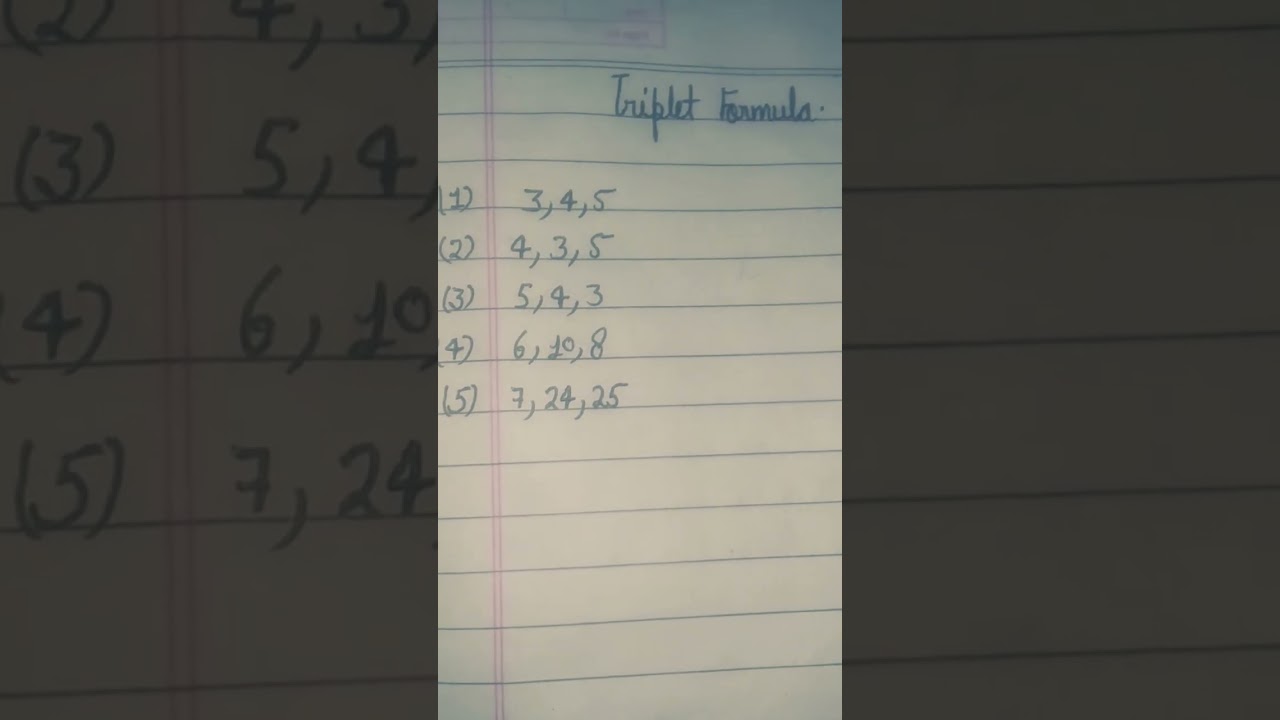 Triplet Formula.
(1) 3, 4, 5
(2) 4, 3, 5
(3) 5, 4, 3
(4) 6, 10, 8
(5) 7, 24, 25